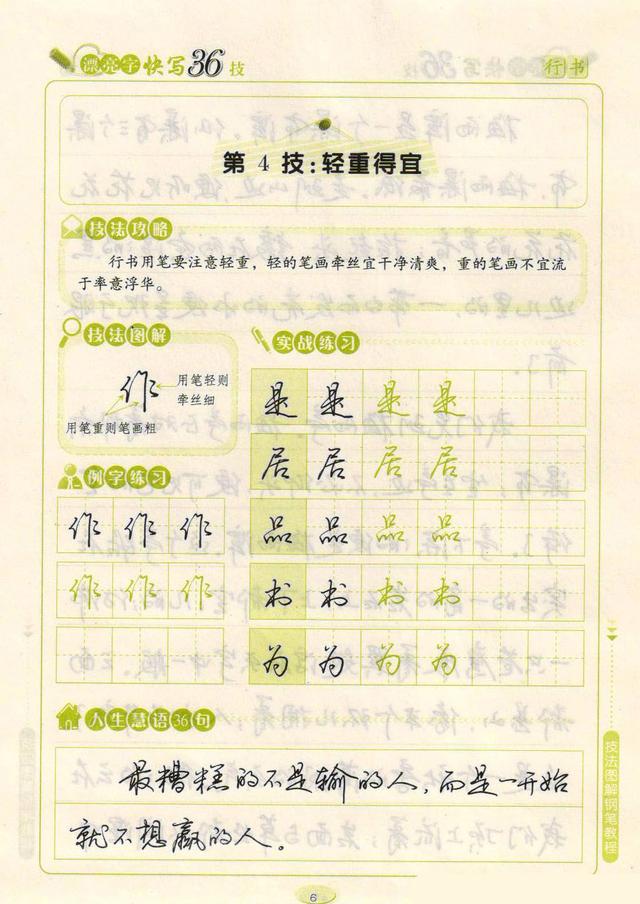 漂亮字快写36技
行书
第4技:轻重得宜
技法攻略
行书用笔要注意轻重，轻的笔画牵丝宜干净清爽，重的笔画不宜流
于率意浮华。
技法图解
作
用笔轻则
牵丝细
用笔重则笔画粗
例字练习
作 作 作
作 作 作
实战练习
是 是 是 是
居 居 居 居
品 品 品 品
书 书 书 书
为 为 为 为
人生慧语36句
最糟糕的不是输的人,而是一开始
就不想赢的人。
技法图解钢笔教程
6